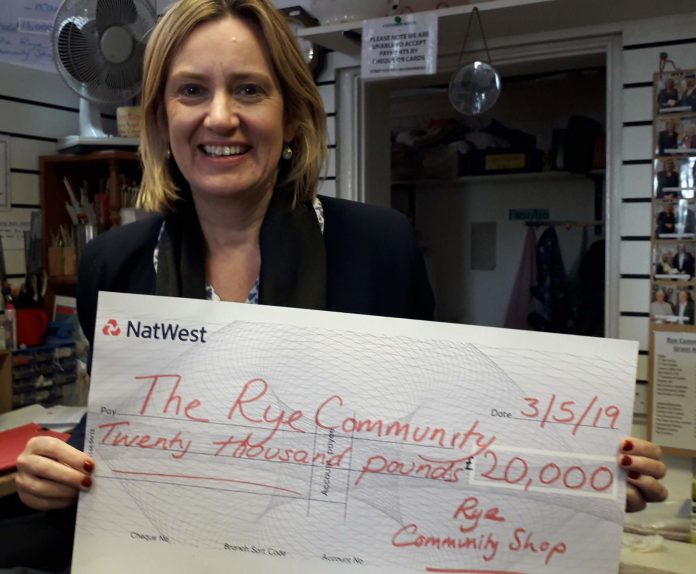 PLEASE NOTE WE ARE
UNABLE TO ACCEPT
PAYMENTS BY
CHEQUE OR CARDS
First Aid
NatWest
Pay The Rye Community
Date 3/5/19
Twenty thousand pounds £ 20,000
Account payee
Rye
Community Shop
Cheque No.
Branch Sort Code
Account No.
Rye Comm
Grant